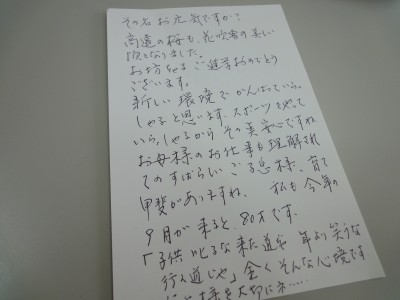 その后お元気ですか?
高遠の桜も、花吹雪の美しい
頃となりました。
お坊ちゃまご進学おめでとう
ございます。
新しい環境でがんばっていらっ
しゃると思います。スポーツをやって
いらっしゃるから その美安心ですね
お母様のお仕事も理解され
てのすばらしいご子息様、育て
甲斐がありますね、 私も今年の
9月が来ると、80才です。
「子供叱るな来た道を 年より笑うな
行く道じゃ」全くそんな心境です
を大切にネ.....